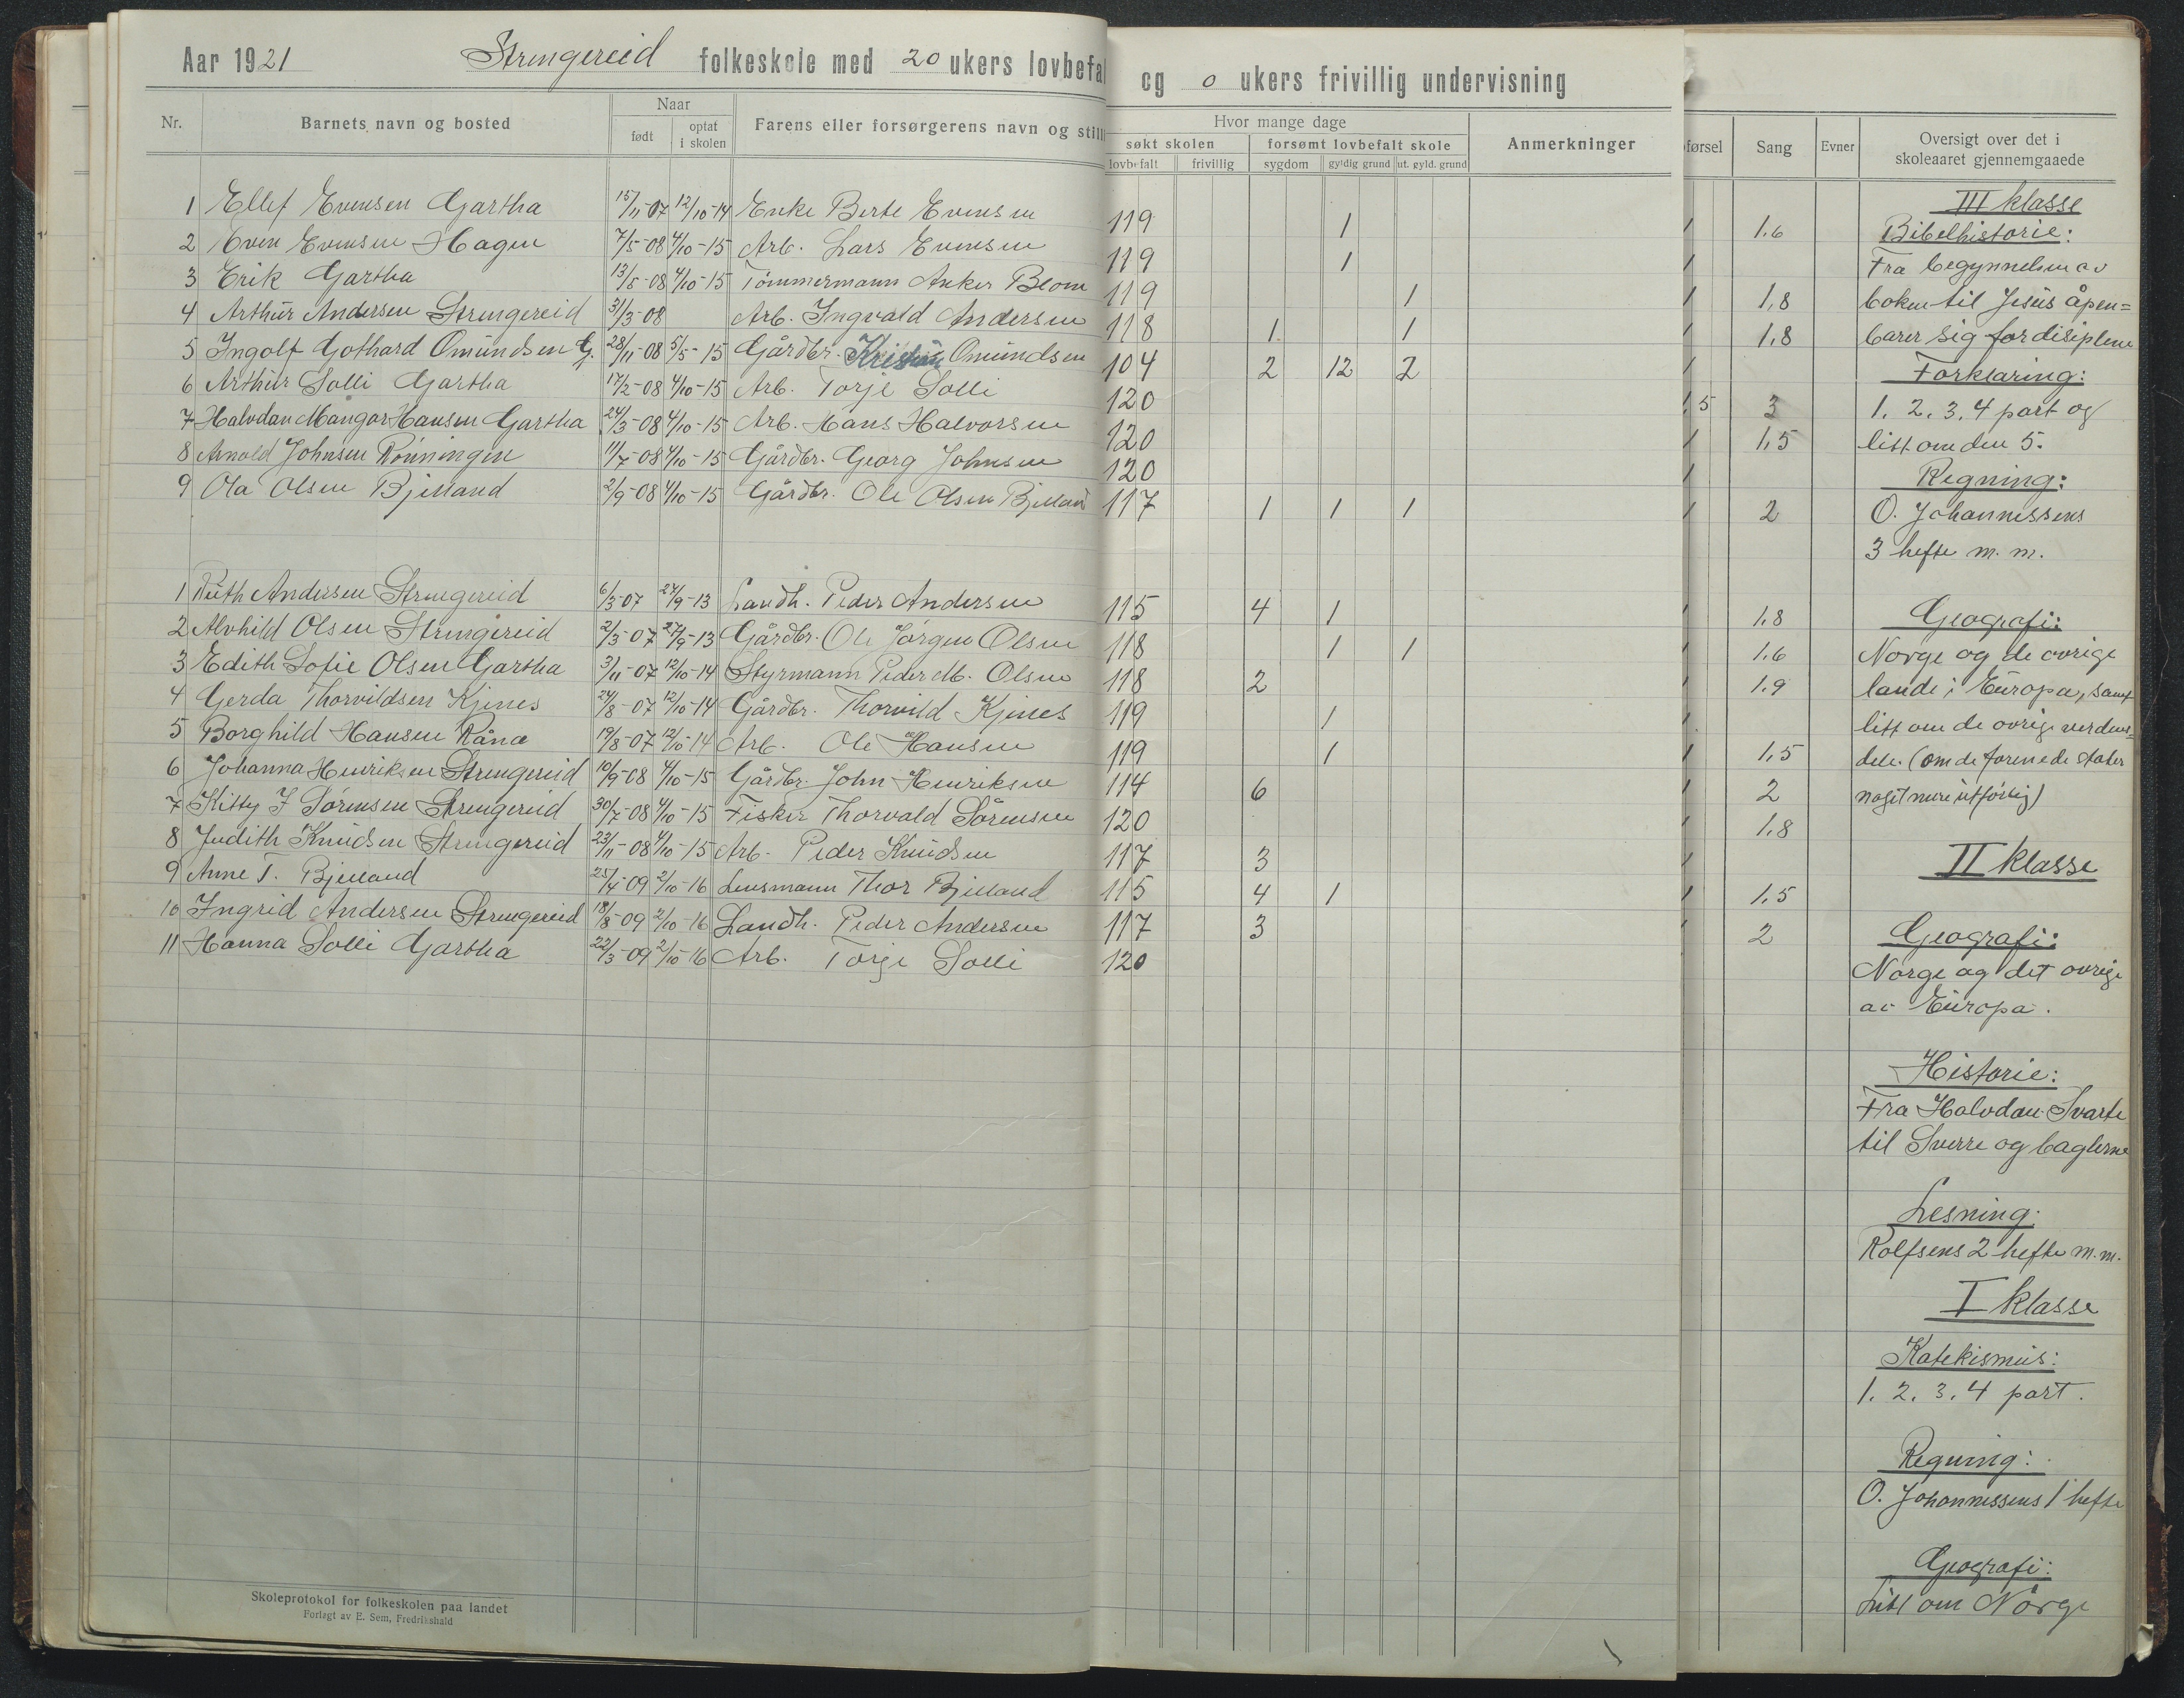 Aar 1921 Strengereid folkeskole med 20 ukers lovbefa og 0 ukers frivillig undervisning
Nr. Barnets navn og bosted Naar født optat i skolen Farens eller forsørgerens navn og still
Hvor mange dage
søkt skolen forsømt lovbefalt skole Anmerkninger
lovbefalt frivillig sygdom gyldig grund ut. gyld. grund
førsel Sang Evner Oversigt over det i skoleaaret gjennemgaaede
1 Ellef Evensen Gartha 15/11-07 12/10-14 Enke Berte Evensen 119 1
2 Even Evensen Hagen 7/5-08 4/10-15 Arb. Lars Evensen 119 1
3 Erik Gartha 13/5-08 4/10-15 Tømmermann Anker Blom 119 1
4 Arthur Andersen Strengereid 31/3-08 Arb. Ingvald Andersen 118 1 1
5 Ingolf Gothard Omundsen G. 28/11-08 5/5-15 Gårdbr. Kristian Omundsen 104 2 12 2
6 Arthur Solli Gartha 17/2-08 4/10-15 Arb. Torje Solli 120
7 Halvdan Mangor Hansen Gartha 24/3-08 4/10-15 Arb. Hans Halvorsen 120
8 Arnold Johnsen Rønningen 11/7-08 4/10-15 Gårdbr. Georg Johnsen 120
9 Ola Olsen Bjelland 2/9-08 4/10-15 Gårdbr. Ole Olsen Bjelland 117 1 1 1
1 Ruth Andersen Strengereid 6/3-07 27/9-13 Landh. Peder Andersen 115 4 1
2 Alvhild Olsen Strengereid 2/3-07 27/9-13 Gårdbr. Ole Jørgen Olsen 118 1 1
3 Edith Sofie Olsen Gartha 3/11-07 12/10-14 Styrmann Peder M. Olsen 118 2
4 Gerda Thorvildsen Kjenes 24/8-07 12/10-14 Gårdbr. Thorvild Kjenes 119 1
5 Borghild Hansen Råna 19/8-07 12/10-14 Arb. Ole Hansen 119 1
6 Johanna Henriksen Strengereid 10/9-08 4/10-15 Gårdbr. John Henriksen 114 6
7 Kitty J Sørensen Strengereid 30/7-08 4/10-15 Fisker Thorvald Sørensen 120
8 Judith Knudsen Strengereid 23/11-08 4/10-15 Arb. Peder Knudsen 117 3
9 Anne T. Bjelland 25/4-09 2/10-16 Lensmann Thor Bjelland 115 4 1
10 Ingrid Andersen Strengereid 18/8-09 2/10-16 Landh. Peder Andersen 117 3
11 Hanna Solli Gartha 22/3-09 2/10-16 Arb. Torje Solli 120
1 1.6
1
1 1,8
1 1.8
1
1,5 3
1 1,5
1
1 2
1 1.8
1 1.6
1 1.9
1
1 1,5
1 2
1 1.8
1
1 1.5
1 2
III klasse
Bibelhistorie:
Fra begynnelsen av
boken til Jesus åpen=
barer sig for disiplene
Forklaring:
1. 2. 3. 4 part og
litt om den 5.
Regning:
O. Johannessens
3 hefte m. m.
Geografi:
Norge og de øvrige
lande i Europa, samt
litt om de øvrige verdens=
dele. (om de forenede stater
noget mere utførlig)
II klasse
Geografi:
Norge og det øvrige
av Europa.
Historie:
Fra Halvdan Svarte
til Sverre og baglerne
Lesning:
Rolfsens 2 hefte m. m.
I klasse
Katekismus:
1. 2. 3. 4 part.
Regning:
O. Johannessens 1 hefte
Geografi:
Litt om Norge
Skoleprotokol for folkeskolen paa landet
Forlagt av E. Sem, Fredrikshald